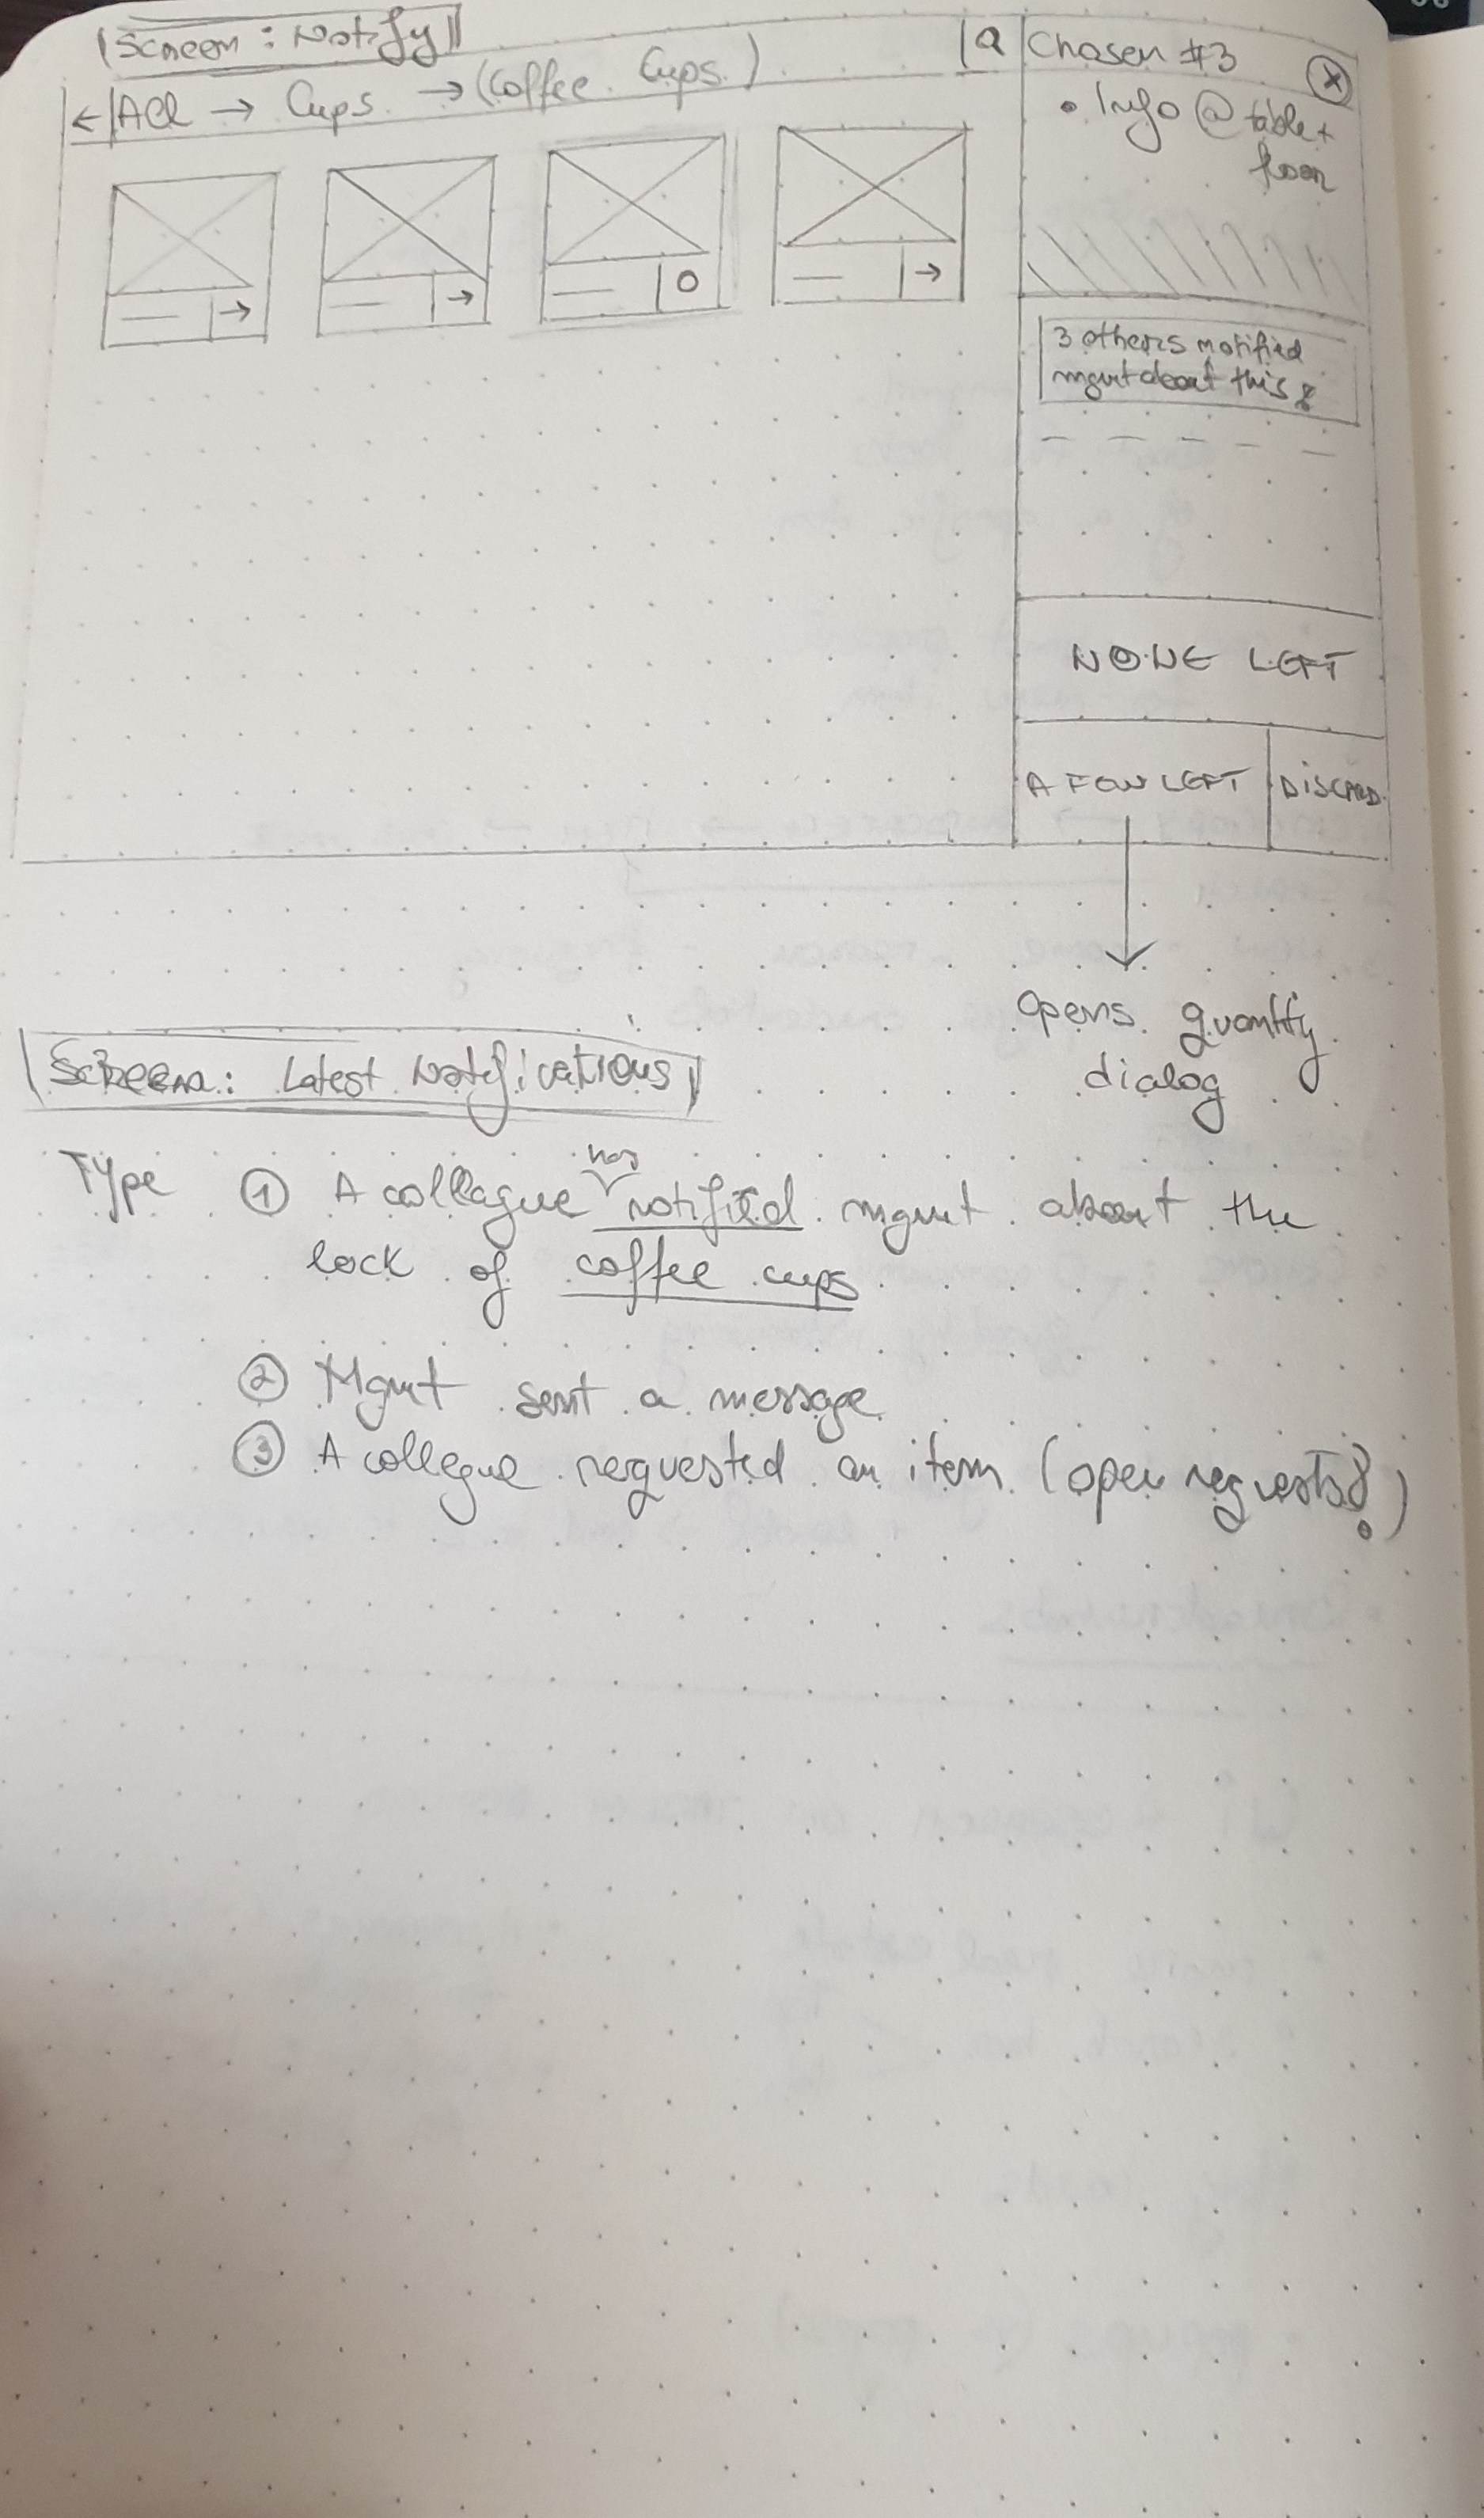 Screen: Notify
← All → Cups → (Coffee Cups)
Q
Chosen #3
x
• Info @ table +
floor
→
→
O
→
3 others notified
mgmt about this!
NONE LEFT
A FEW LEFT
DISCARD
opens quantity
dialog
Screen: Latest Notifications
Type ① A colleague has notified mgmt about the
lack of coffee cups
② Mgmt sent a message
③ A collegue requested an item (open requests?)